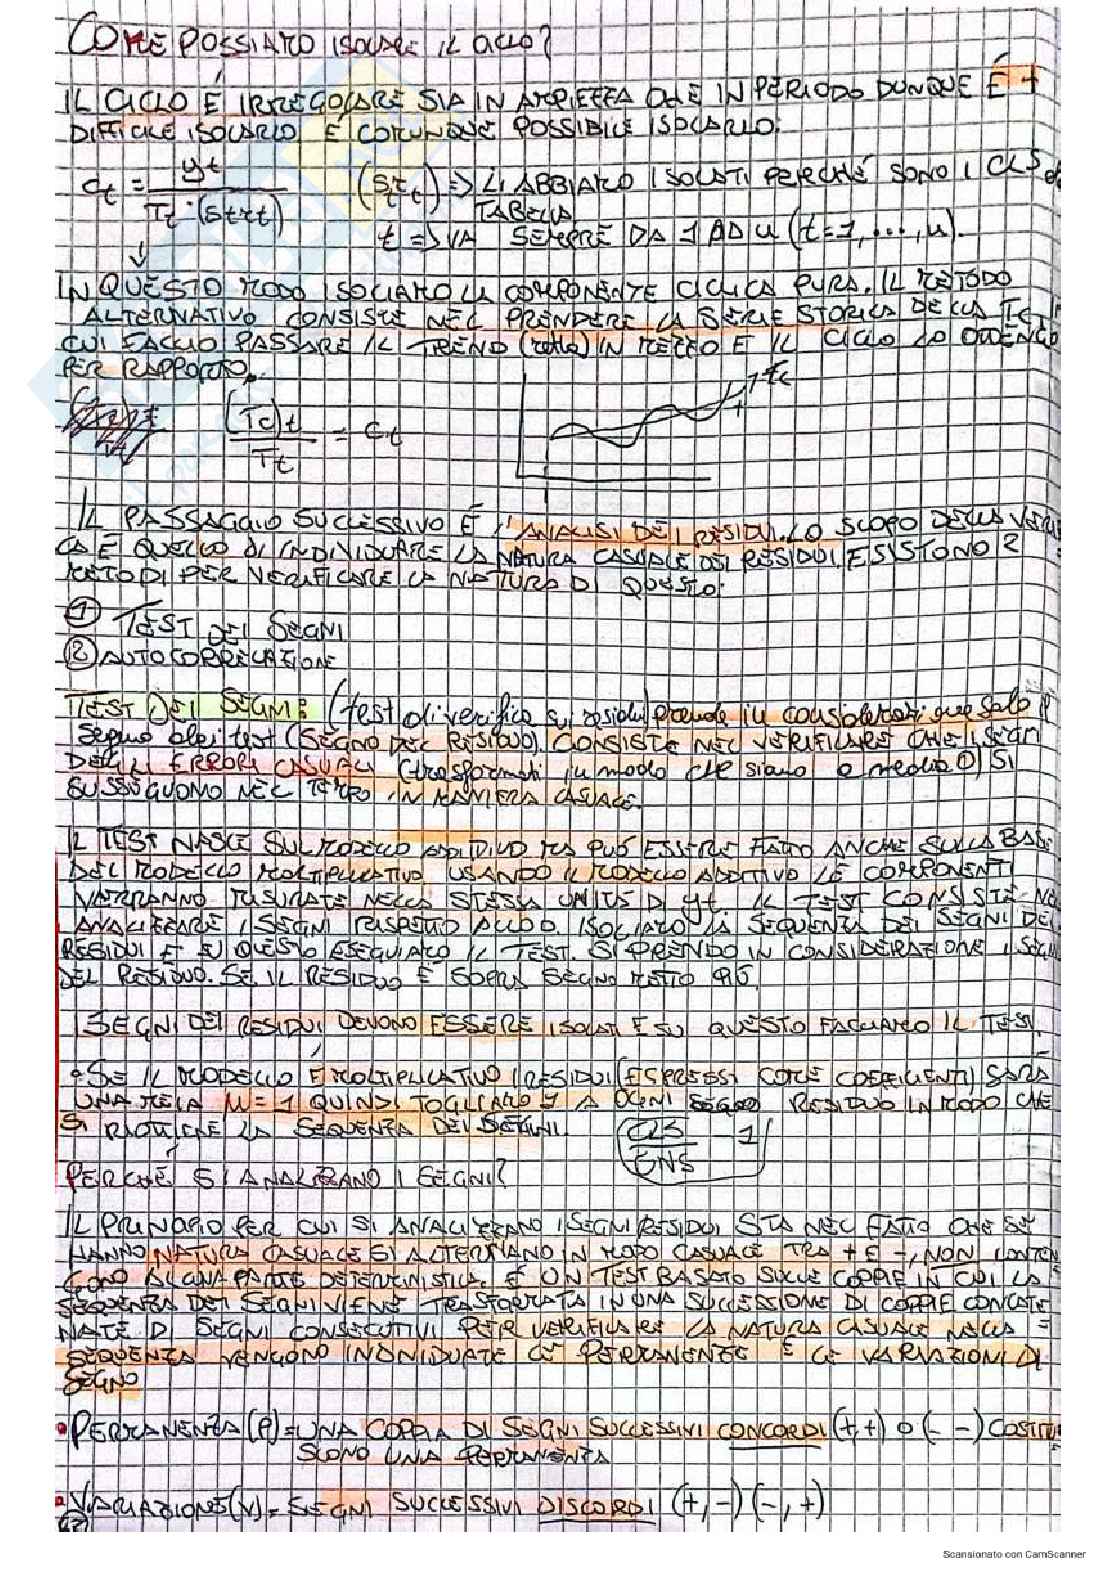 COME POSSIAMO ISOLARE IL CICLO?
IL CICLO È IRREGOLARE SIA IN AMPIEZZA CHE IN PERIODO DUNQUE È +
DIFFICILE ISOLARLO. È COMUNQUE POSSIBILE ISOLARLO:
Ct = yt / Tt·(strt) (St rt) => LI ABBIAMO ISOLATI PERCHÉ SONO I CLS
TABELLA
t => VA SEMPRE DA 1 AD n (t=1,...,n).
IN QUESTO MODO ISOLIAMO LA COMPONENTE CICLICA PURA. IL METODO
ALTERNATIVO CONSISTE NEL PRENDERE LA SERIE STORICA DELLA TC, IN
CUI FACCIO PASSARE IL TREND (retta) IN MEZZO E IL CICLO LO OTTENGO
PER RAPPORTO.
(Tc)t / Tt = Ct
Tc
t
IL PASSAGGIO SUCCESSIVO È L'ANALISI DEI RESIDUI. LO SCOPO DELLA VERIFI
CA È QUELLO DI INDIVIDUARE LA NATURA CASUALE DEI RESIDUI. ESISTONO 2
METODI PER VERIFICARE LA NATURA DI QUESTO:
① TEST DEI SEGNI
② AUTOCORRELAZIONE
TEST DEI SEGNI: (test di verifica sui residui) prende in considerazione solo il
segno dei test (SEGNO DEL RESIDUO). CONSISTE NEL VERIFICARE CHE I SEGNI
DEGLI ERRORI CASUALI (trasformati in modo che siano a media 0) SI
SUSSEGUONO NEL TEMPO IN MANIERA CASUALE.
IL TEST NASCE SUL MODELLO ADDITIVO MA PUÒ ESSERE FATTO ANCHE SULLA BASE
DEL MODELLO MOLTIPLICATIVO. USANDO IL MODELLO ADDITIVO LE COMPONENTI
VERRANNO MISURATE NELLA STESSA UNITÀ DI yt. IL TEST CONSISTE NE
ANALIZZARE I SEGNI RISPETTO ALLO 0. ISOLIAMO LA SEQUENZA DEI SEGNI DEI
RESIDUI E SU QUESTO ESEGUIAMO IL TEST. SI PRENDO IN CONSIDERAZIONE I SEGNI
DEL RESIDUO. SE IL RESIDUO È SOPRA SEGNO METTO
I SEGNI DEI RESIDUI DEVONO ESSERE ISOLATI E SU QUESTO FACCIAMO IL TEST.
• SE IL MODELLO È MOLTIPLICATIVO I RESIDUI (ESPRESSI COME COEFFICIENTI) SARÀ
UNA M=1 QUINDI TOGLIAMO 1 A OGNI RESIDUO IN MODO CHE
SI OTTIENE LA SEQUENZA DEI SEGNI.
CLS / GNS - 1
PERCHÉ SI ANALIZZANO I SEGNI?
IL PRINCIPIO PER CUI SI ANALIZZANO I SEGNI RESIDUI STA NEL FATTO CHE SE
HANNO NATURA CASUALE SI ALTERNANO IN MODO CASUALE TRA + E -, NON CONTEN
GONO ALCUNA PARTE DETERMINISTICA. È UN TEST BASATO SULLE COPPIE IN CUI LA
SEQUENZA DEI SEGNI VIENE TRASFORMATA IN UNA SUCCESSIONE DI COPPIE CONCATE
NATE DI SEGNI CONSECUTIVI PER VERIFICARE LA NATURA CASUALE NELLA =
SEQUENZA VENGONO INDIVIDUATE LE PERMANENZE E LE VARIAZIONI DI
SEGNO
• PERMANENZA (P) = UNA COPPIA DI SEGNI SUCCESSIVI CONCORDI (+,+) O (- -) COSTITUI
SCONO UNA PERMANENZA
• VARIAZIONE (V) = SEGNI SUCCESSIVI DISCORDI (+,-) (-,+)
Scansionato con CamScanner